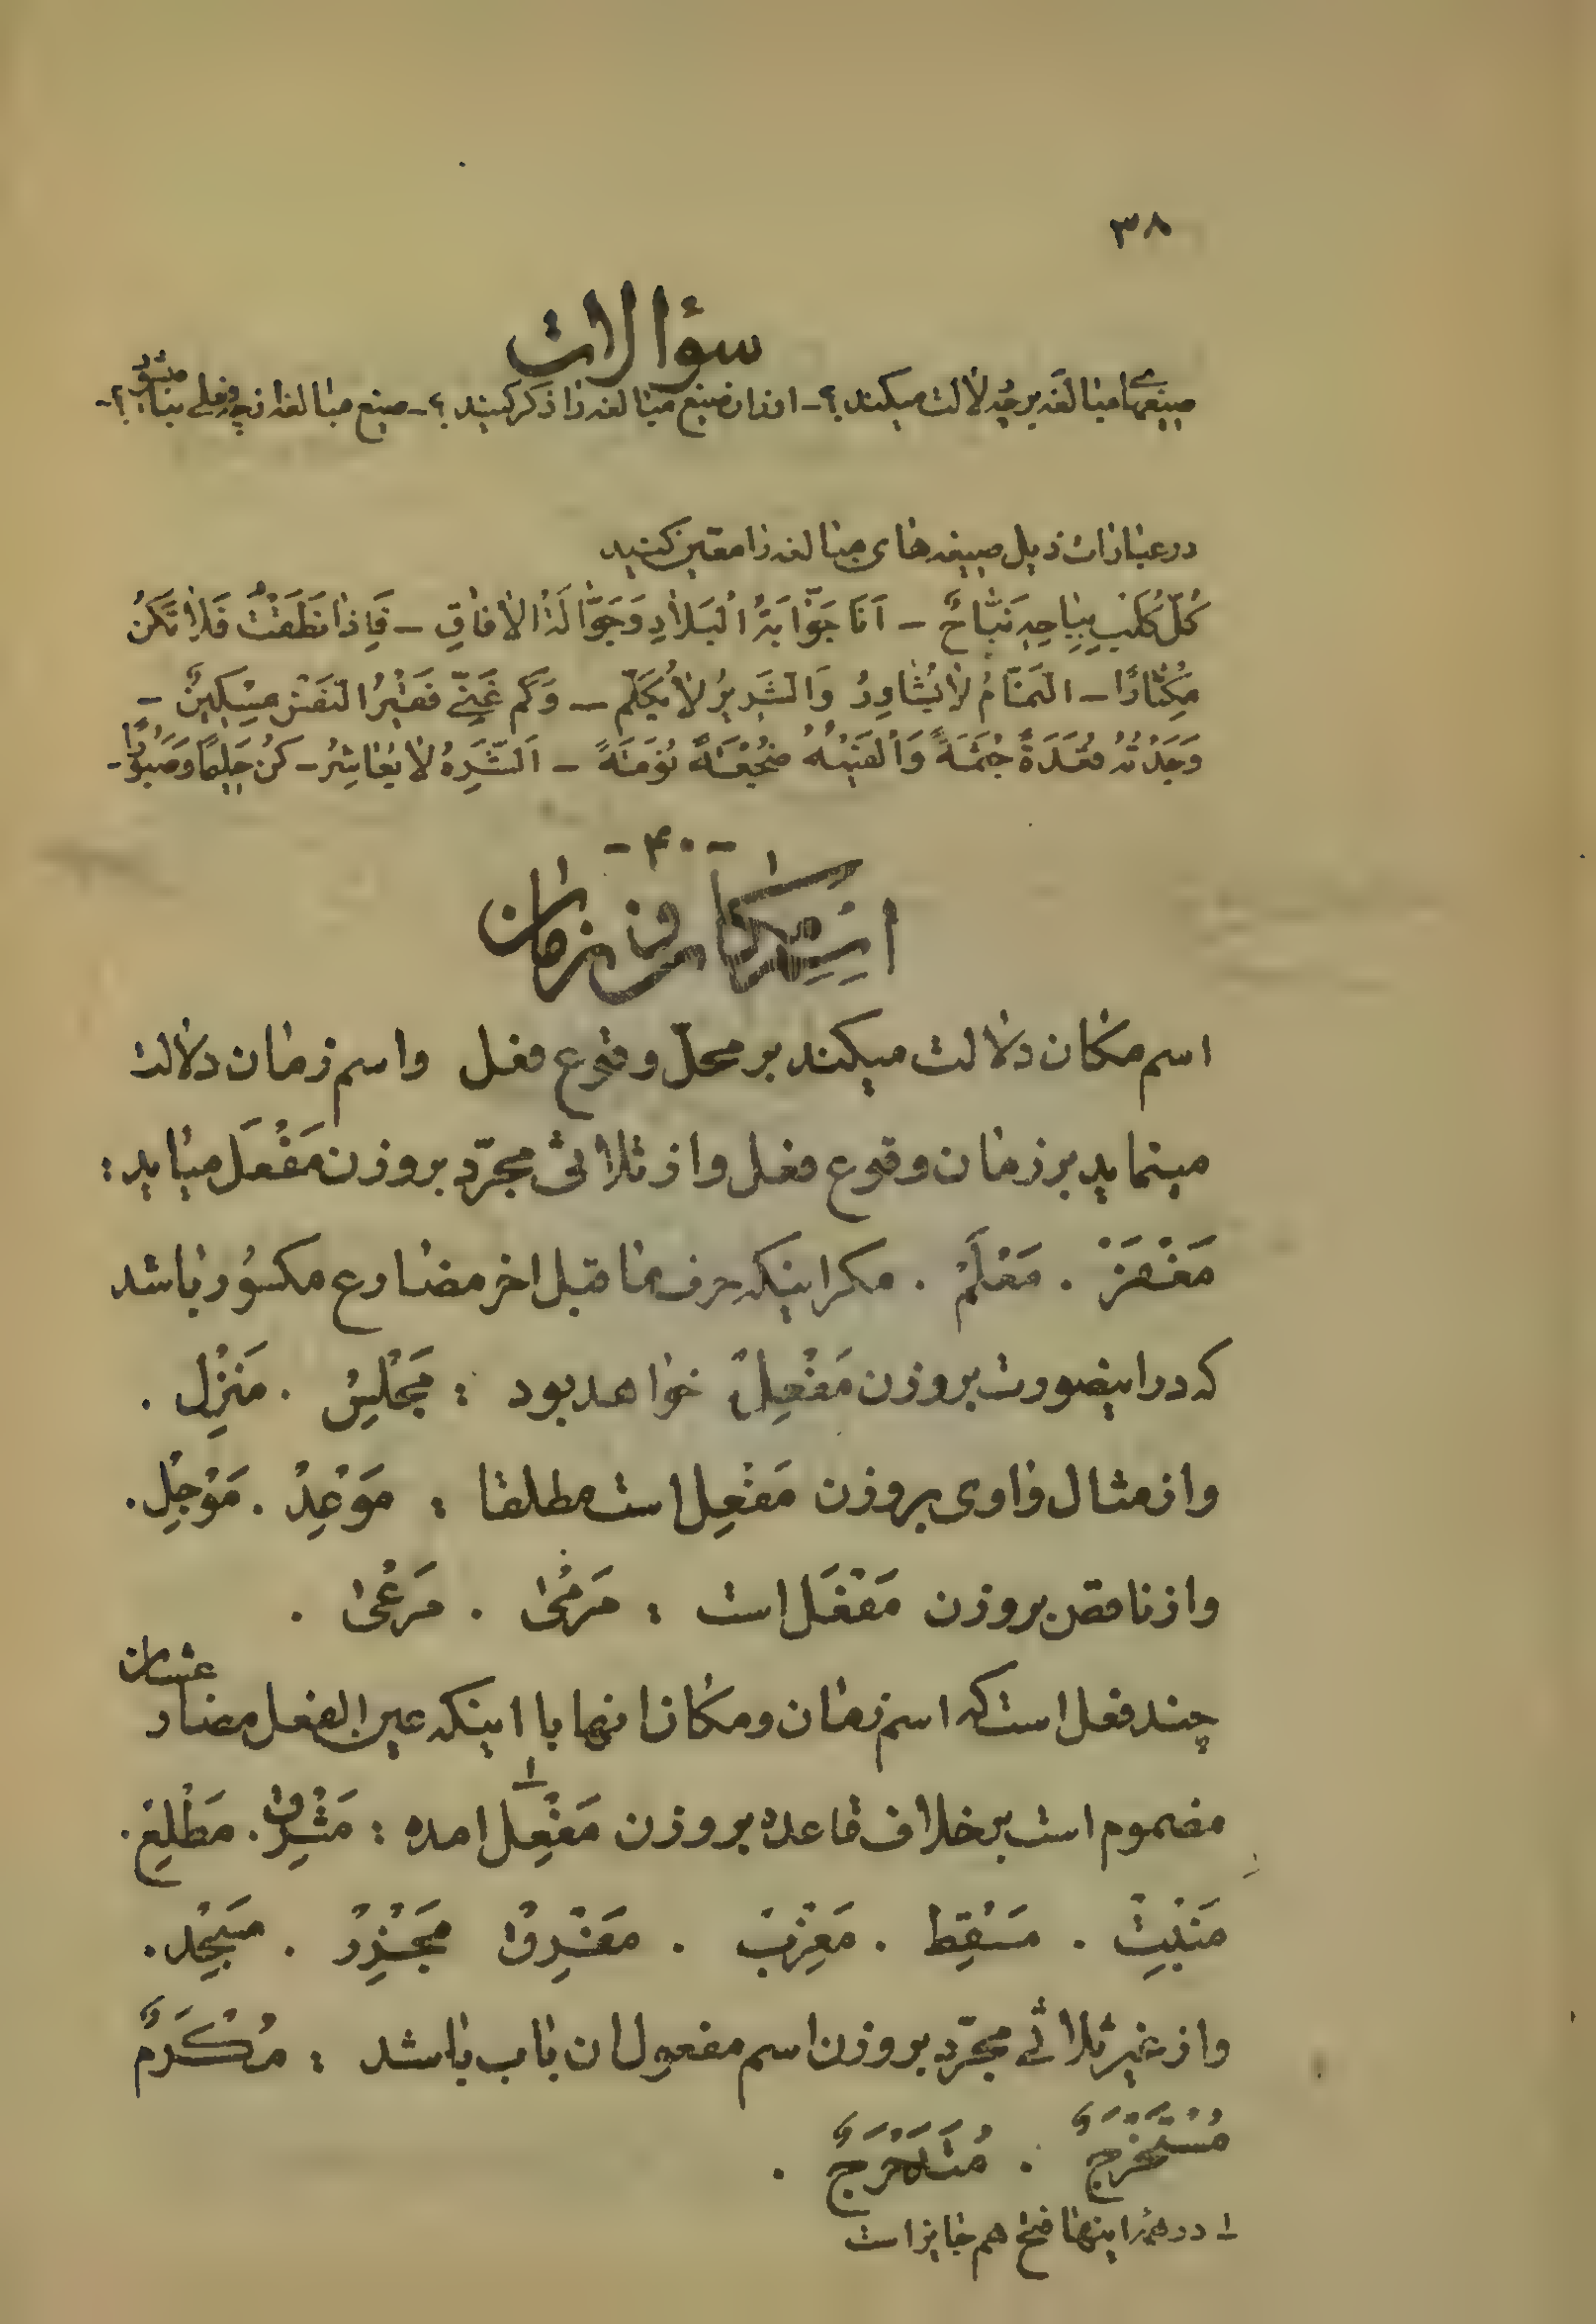 ۳۸
سؤالات
صیغهای مبالغه بر چه دلالت میکند؟ - اوزان صیغ مبالغه را ذکر کنید؟ - صیغ مبالغه از چه فعلی بنا میشود؟ -
در عبارات ذیل صیغه های مبالغه را معین کنید
كُلُّ كَلْبٍ بِبَابِهِ نَبَّاحٌ - اَنَا جَوَّابَةُ الْبِلَادِ وَجَوَّالَةُ الْآفاقِ - فَاِذا نَطَقْتَ فَلَا تَكُنْ
مِكْثَارًا - النَّمَّامُ لا يُشَاوَرُ وَالشِّرِّيرُ لا يُكَلَّم - وَكَم غَنِيٍّ فَقِيْرُ النَّفْسِ مِسْكِينٌ -
وَجَدْتُهُ قُعَدَةً جُثَمَةً وَاَلْفَيْتُهُ ضُجَعَةً نُوَمَةً - اَلشَّرِهُ لا يُعَاشَرُ - كُنْ حَلِيمًا وَصَبُورًا -
- ۴۰ -
اسم مکان و زمان
اسم مکان دلالت میکند بر محلّ وقوع فعل واسم زمان دلالت
مینماید بر زمان وقوع فعل واز ثلاثی مجرّد بر وزن مَفْعَل میاید :
مَغْفَرْ . مَعْلَمْ . مکر اینکه حرف ماقبل اخر مضارع مکسور باشد
که در اینصورت بر وزن مَفْعِلٌ خواهد بود : مَجْلِسْ . مَنْزِل .
واز مثال واوی بر وزن مَفْعِل است مطلقا : مَوْعِدْ . مَوْجِل .
واز ناقص بر وزن مَفْعَل است : مَرْمیٰ . مَرْعیٰ .
چند فعل است که اسم زمان ومکان انها با اینکه عین الفعل مضارعشان
مضموم است بر خلاف قاعده بر وزن مَفْعِل۱ امده : مَشْرِقْ . مَطْلِعْ .
مَنْبِتْ . مَسْقِط . مَغْرِبْ . مَفْرِقْ مَجْزِرْ . مَسْجِد .
واز غیر ثلاثی مجرّد بر وزن اسم مفعول ان باب باشد : مُكْرَمٌ
مُسْتَخْرَجٌ . مُتَدَحْرَجٌ .
۱- در همهٔ اینها فتح هم جایز است